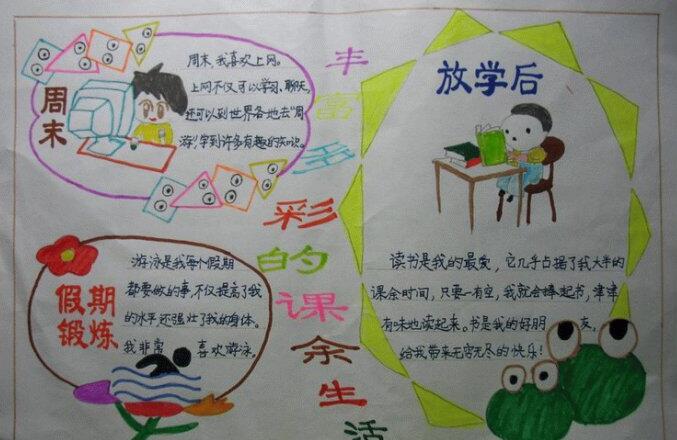 周末
周末，我喜欢上网。
上网不仅可以学习、聊天，
还可以到世界各地去“周
游”，学到许多有趣的知识。
丰富多彩的课余生活
放学后
读书是我的最爱，它几乎占据了我大半的
课余时间，只要一有空，我就会捧起书，津津
有味地读起来。书是我的好朋友，
给我带来无穷无尽的快乐！
假期
锻炼
游泳是我每个假期
都要做的事，不仅提高了我
的水平还强壮了我的身体。
我非常喜欢游泳。